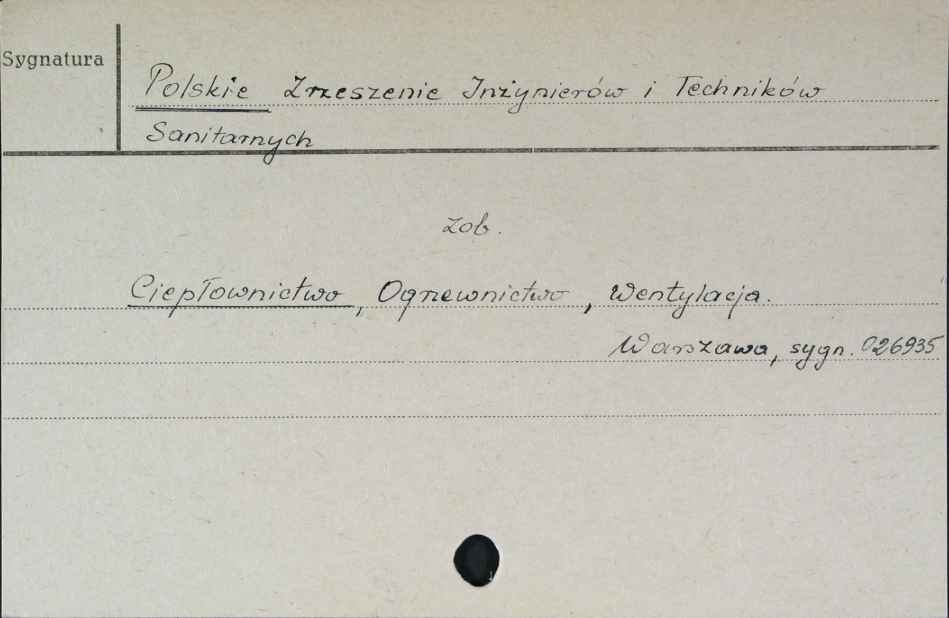 Sygnatura
Polskie Zrzeszenie Inżynierów i Techników
Sanitarnych
zob.
Ciepłownictwo, Ogrzewnictwo, Wentylacja.
Warszawa, sygn. 026935